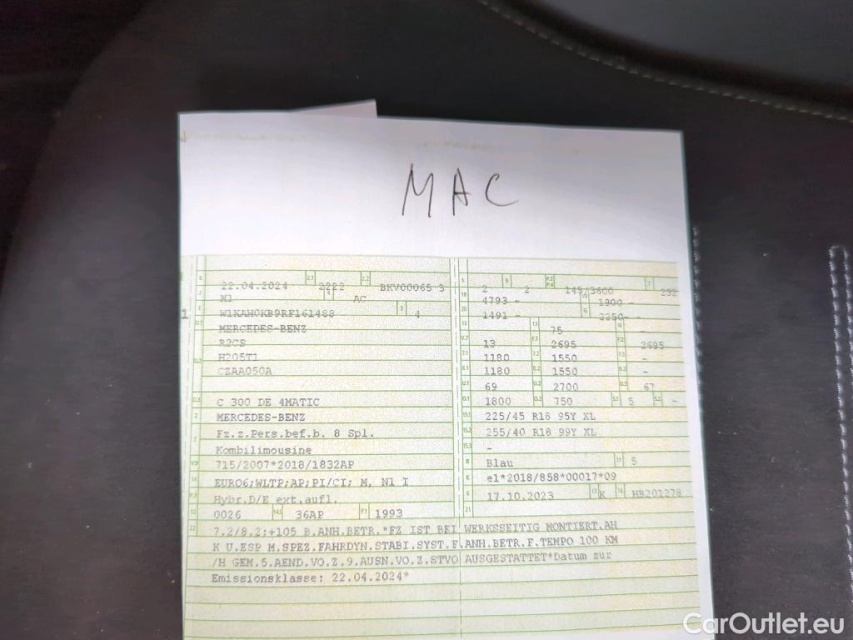 MAC
22.04.2024 2222 BKV00065 3 2 2 145/3600 232
M1 AC 4793 - 1900 -
W1KAH0KB9RF161488 4 1491 - 2250-
MERCEDES-BENZ 75 -
R2CS 13 2695 2695
H205T1 1180 1550 -
CZAA050A 1180 1550 -
69 2700 67
C 300 DE 4MATIC 1800 750 5 -
MERCEDES-BENZ 225/45 R18 95Y XL
Fz.z.Pers.bef.b. 8 Spl. 255/40 R18 99Y XL
Kombilimousine -
715/2007*2018/1832AP Blau 5
EURO6;WLTP;AP;PI/CI; M, N1 I e1*2018/858*00017*09
Hybr.D/E ext.aufl. 17.10.2023 K
0026 36AP 1993
7.2/8.2:+105 B.ANH.BETR.*FZ IST BEI WERKSSEITIG MONTIERT.AH
K U.ESP M.SPEZ.FAHRDYN.STABI.SYST.F.ANH.BETR.F.TEMPO 100 KM
/H GEM.5.AEND.VO.Z.9.AUSN.VO.Z.STVO AUSGESTATTET*Datum zur
Emissionsklasse: 22.04.2024*
CarOutlet.eu